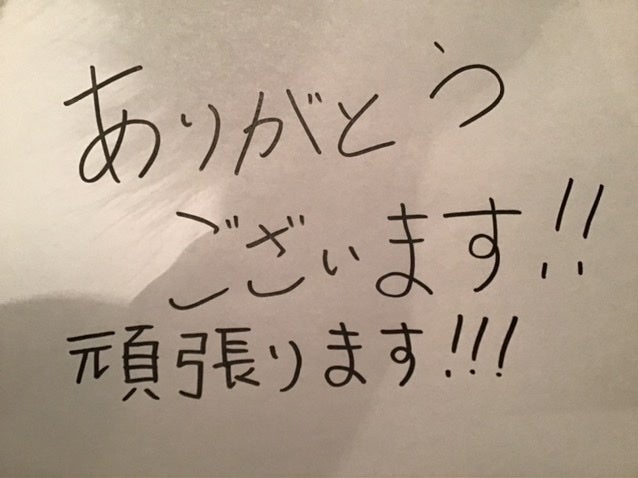 ありがとう
ございます!!
頑張ります!!!